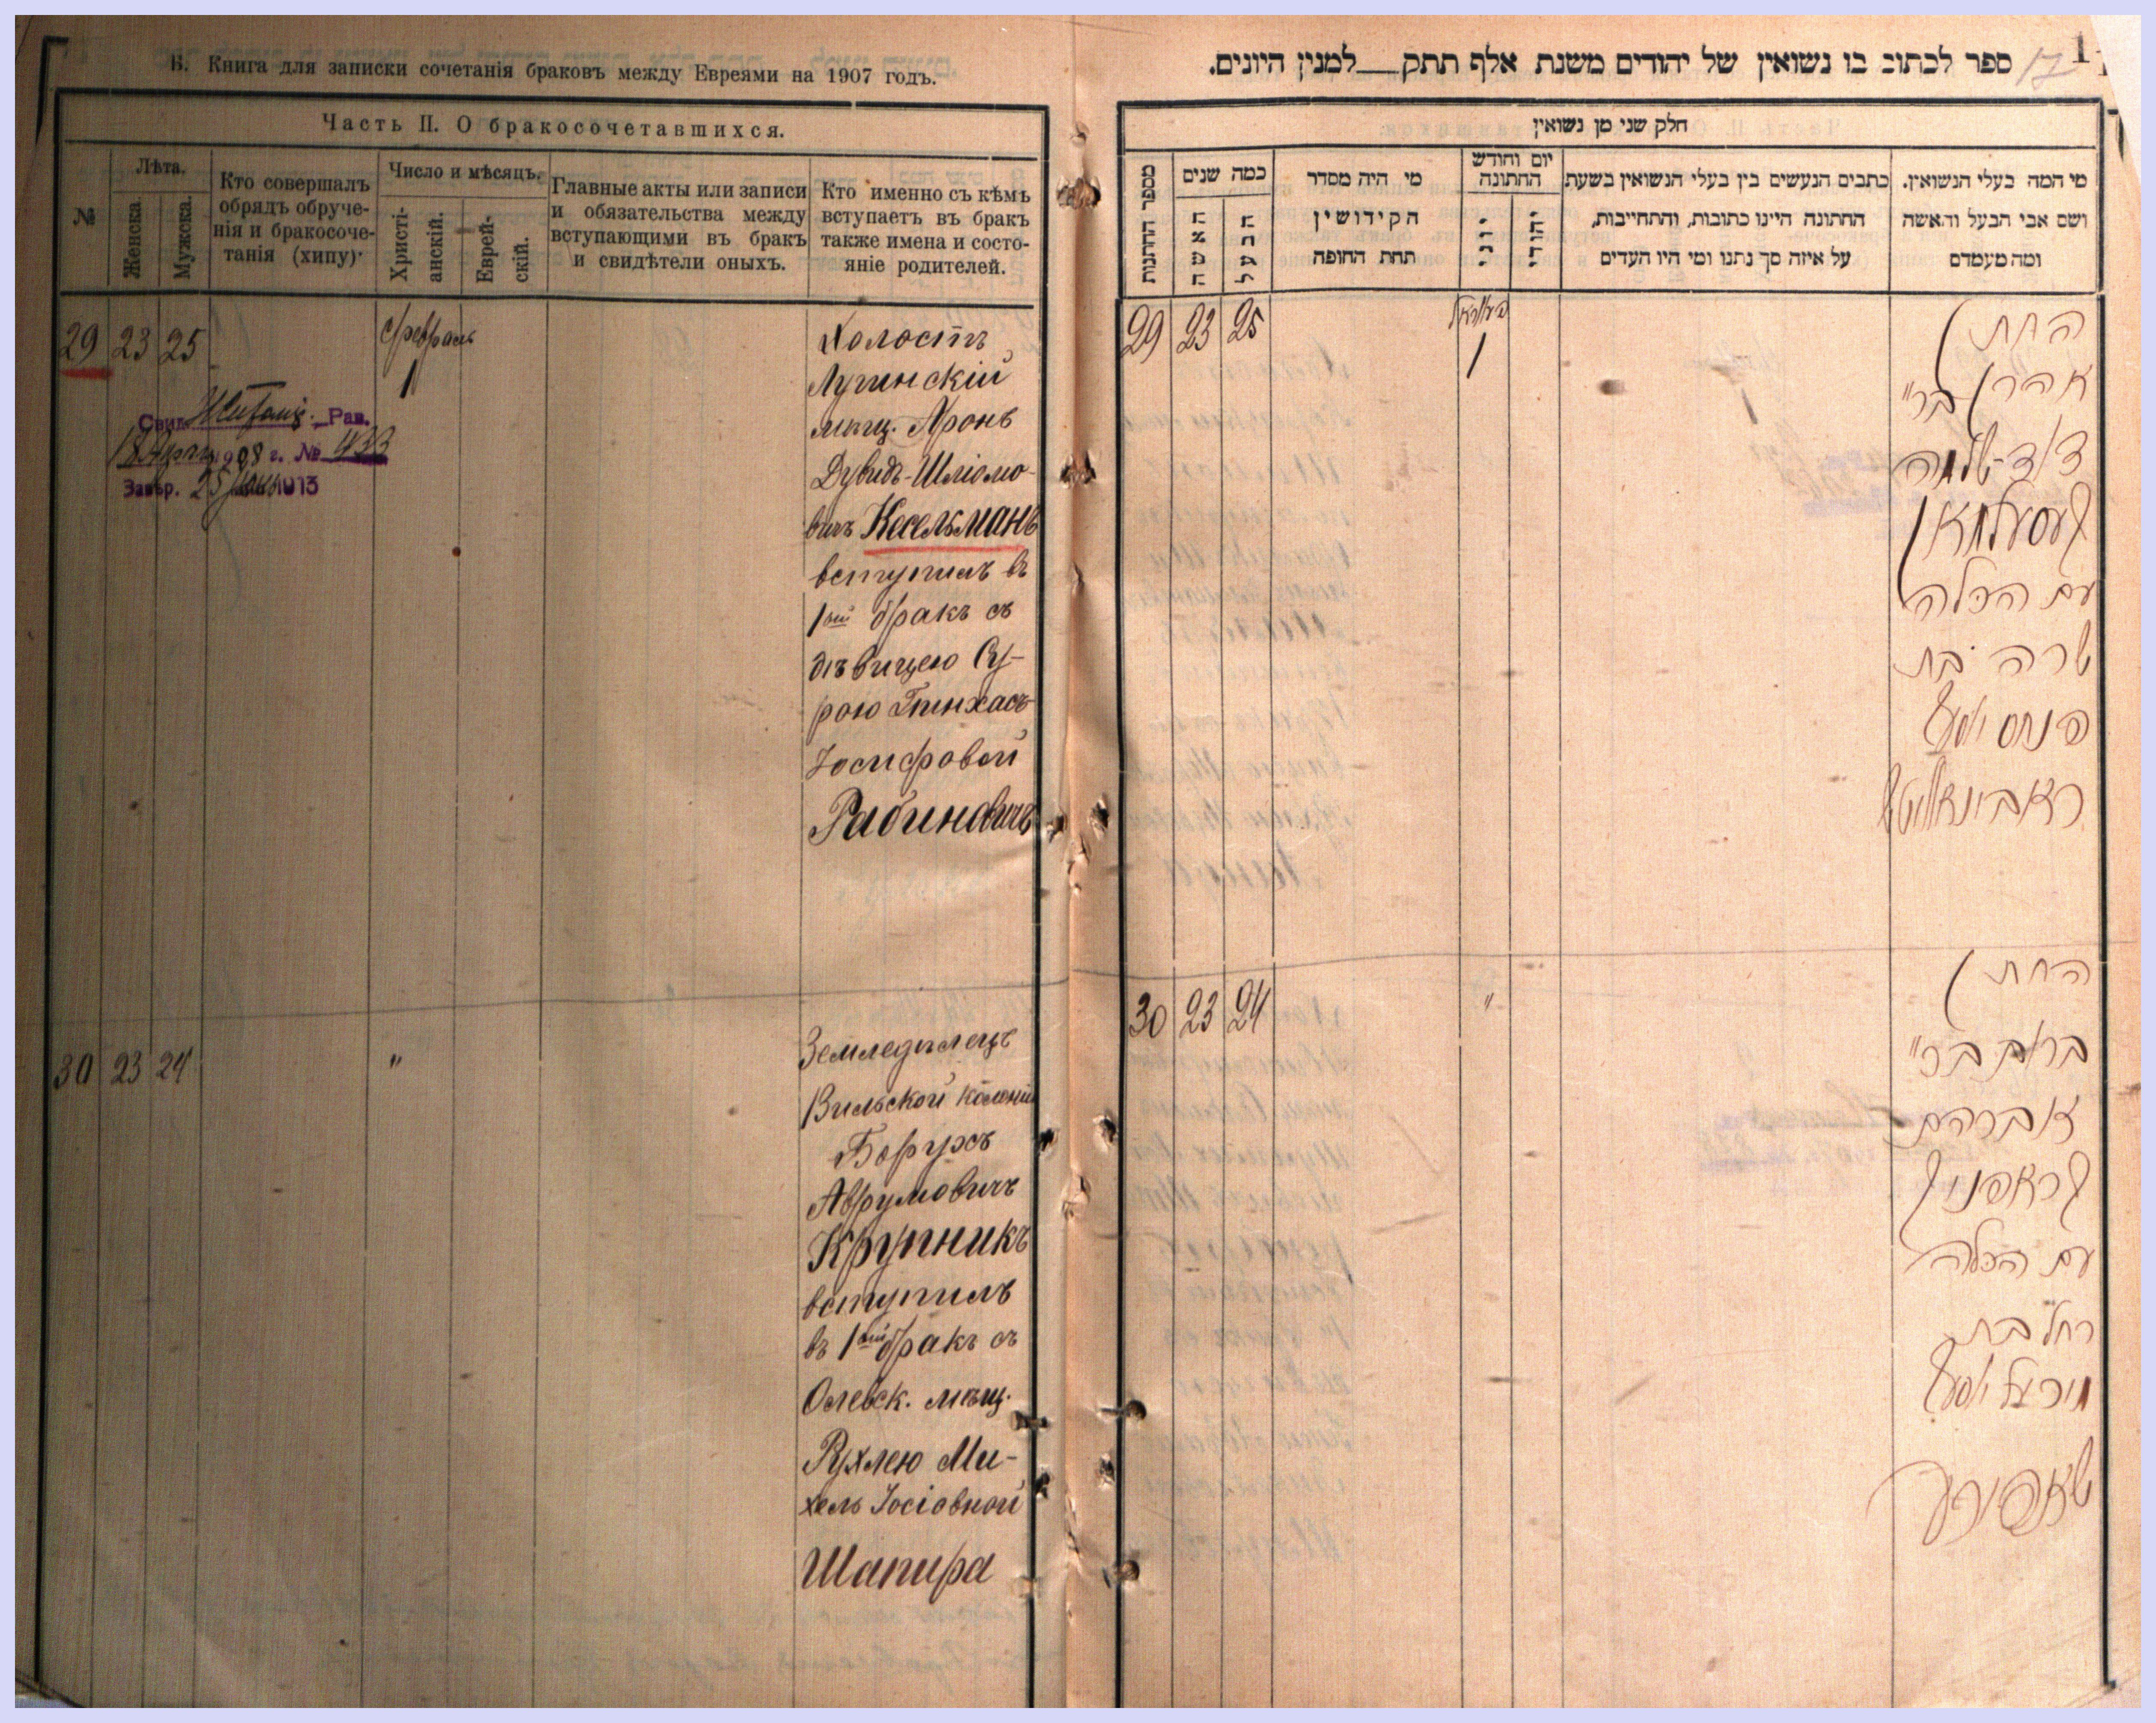 Б. Книга для записки сочетанія браковъ между Евреями на 1907 годъ.
Часть II. О бракосочетавшихся.
№
Лѣта.
Женска.
Мужска.
Кто совершалъ
обрядъ обруче-
нія и бракосоче-
танія (хипу).
Число и мѣсяцъ.
Христі-
анскій.
Еврей-
скій.
Главные акты или записи
и обязательства между
вступающими въ бракъ
и свидѣтели оныхъ.
Кто именно съ кѣмъ
вступаетъ въ бракъ
также имена и состо-
яніе родителей.
29 23 25
Февраль
1
Свид. Житомір. Рав.
1908 г. № 433
Завѣр. 25 1913
Холостъ
Лугинскій
мѣщ. Аронъ
Дувидъ-Шліомо-
вичъ Кесельманъ
вступилъ въ
1ый бракъ съ
дѣвицею Су-
рою Пинхасъ
Іосифовой
Рабиновичъ
30 23 24 "
Земледѣлецъ
Вильской колоніи
Борухъ
Аврумовичъ
Крупникъ
вступилъ
въ 1ый бракъ съ
Олевск. мѣщ.
Рухлею Ми-
хель Іосіовной
Шапира
ספר לכתוב בו נשואין של יהודים משנת אלף תתק למנין היונים.
17
חלק שני מן נשואין
מספר החתנות
כמה שנים
האשה
הבעל
מי היה מסדר
הקידושין
תחת החופה
יום וחודש
החתונה
יוני
יהודי
כתבים הנעשים בין בעלי הנשואין בשעת
החתונה היינו כתובות, והתחייבות,
על איזה סך נתנו ומי היו העדים
מי המה בעלי הנשואין.
ושם אבי הבעל והאשה
ומה מעמדם
29 23 25
1
החתן
אהרן בר"
דוד-שלמה
קעסעלמאן
עם הכלה
שרה בת
פינחס יוסף
ראבינאוויטץ
30 23 24 "
החתן
ברוך בר"
אברהם
קראפניק
עם הכלה
רחל בת
מיכאל יוסף
שאפירא